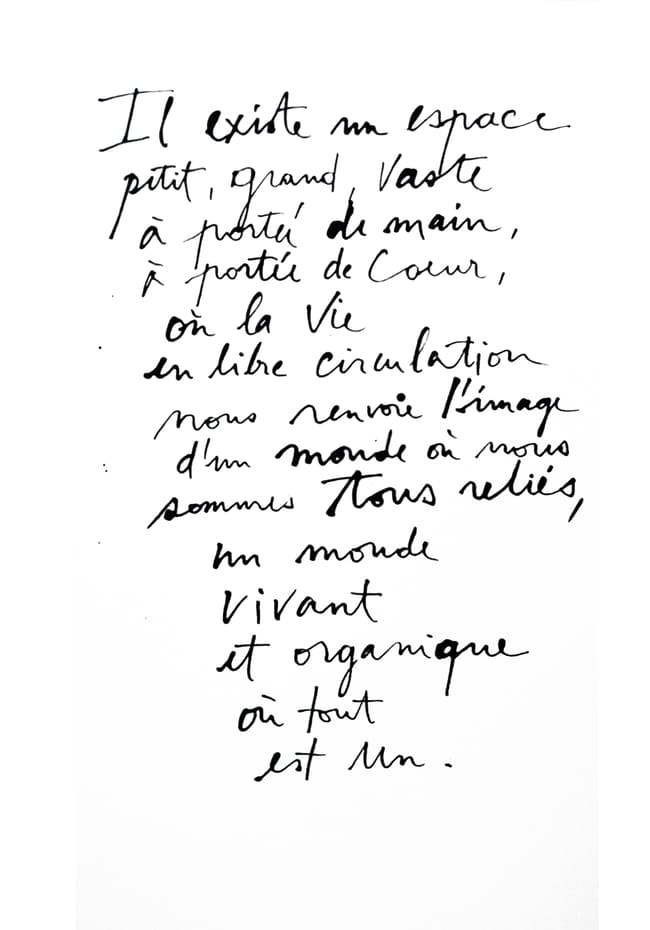 Il existe un espace
petit, grand, vaste
à porté de main,
à portée de Coeur,
où la Vie
en libre circulation
nous renvoie l'image
d'un monde où nous
sommes Tous reliés,
un monde
vivant
et organique
où tout
est Un.